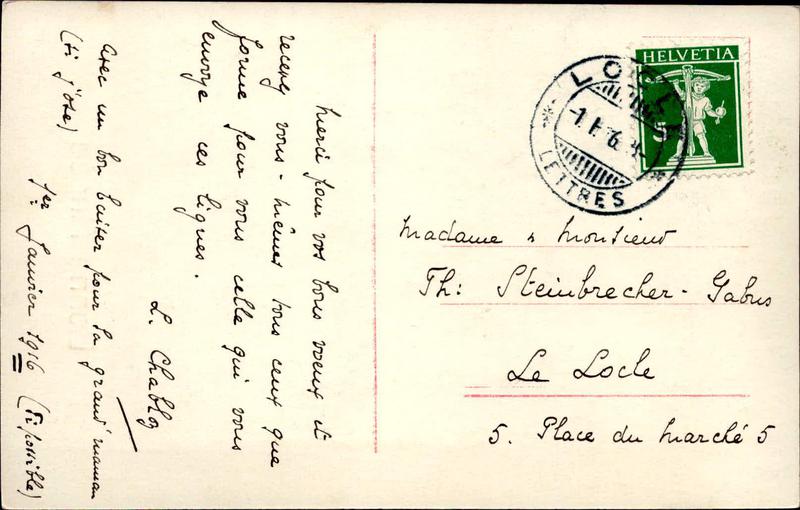 Merci pour vos bons voeux et
recevez vous-mêmes tous ceux que
forme pour vous celle qui vous
envoye ces lignes.
L. Chabloz
Avec un bon baiser pour la grand'maman
(si j'ose)
1er Janvier 1916 (si possible)
HELVETIA
5
LOCLE
-1.I.16.
LETTRES
Madame & Monsieur
Th: Steinbrecher-Gabus
Le Locle
5. Place du Marché 5